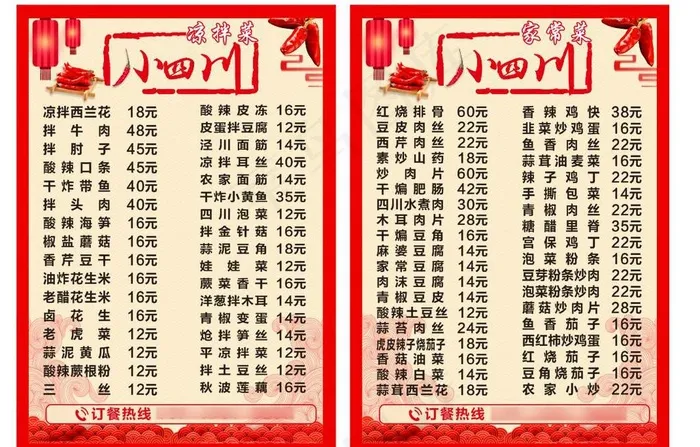 凉拌菜
小四川
凉拌西兰花 18元
拌牛肉 48元
拌肘子 45元
酸辣口条 45元
干炸带鱼 40元
拌头肉 40元
酸辣海笋 16元
椒盐蘑菇 16元
香芹豆干 16元
油炸花生米 16元
老醋花生米 16元
卤花生 16元
老虎菜 12元
蒜泥黄瓜 12元
酸辣蕨根粉 12元
三丝 12元
酸辣皮冻 16元
皮蛋拌豆腐 12元
泾川面筋 14元
凉拌耳丝 40元
农家面筋 14元
干炸小黄鱼 35元
四川泡菜 12元
拌金针菇 16元
蒜泥豆角 18元
娃娃菜 12元
蕨菜香干 16元
洋葱拌木耳 14元
青椒变蛋 14元
炝拌笋丝 14元
平凉拌菜 12元
拌土豆丝 12元
秋波莲藕 16元
订餐热线
家常菜
小四川
红烧排骨 60元
豆皮肉丝 22元
西芹肉丝 22元
素炒山药 18元
炒肉片 60元
干煸肥肠 42元
四川水煮肉 30元
木耳肉片 28元
干煸豆角 16元
麻婆豆腐 14元
家常豆腐 14元
肉沫豆腐 14元
青椒豆皮 14元
酸辣土豆丝 12元
蒜苔肉丝 24元
虎皮辣子烧茄子 18元
香菇油菜 16元
酸辣白菜 14元
蒜茸西兰花 18元
香辣鸡快 38元
韭菜炒鸡蛋 16元
鱼香肉丝 22元
蒜茸油麦菜 16元
辣子鸡丁 22元
手撕包菜 14元
青椒肉丝 22元
糖醋里脊 35元
宫保鸡丁 22元
泡菜粉条 16元
豆芽粉条炒肉 22元
泡菜粉条炒肉 22元
蘑菇炒肉片 28元
鱼香茄子 16元
西红柿炒鸡蛋 16元
红烧茄子 16元
豆角烧茄子 16元
农家小炒 22元
订餐热线